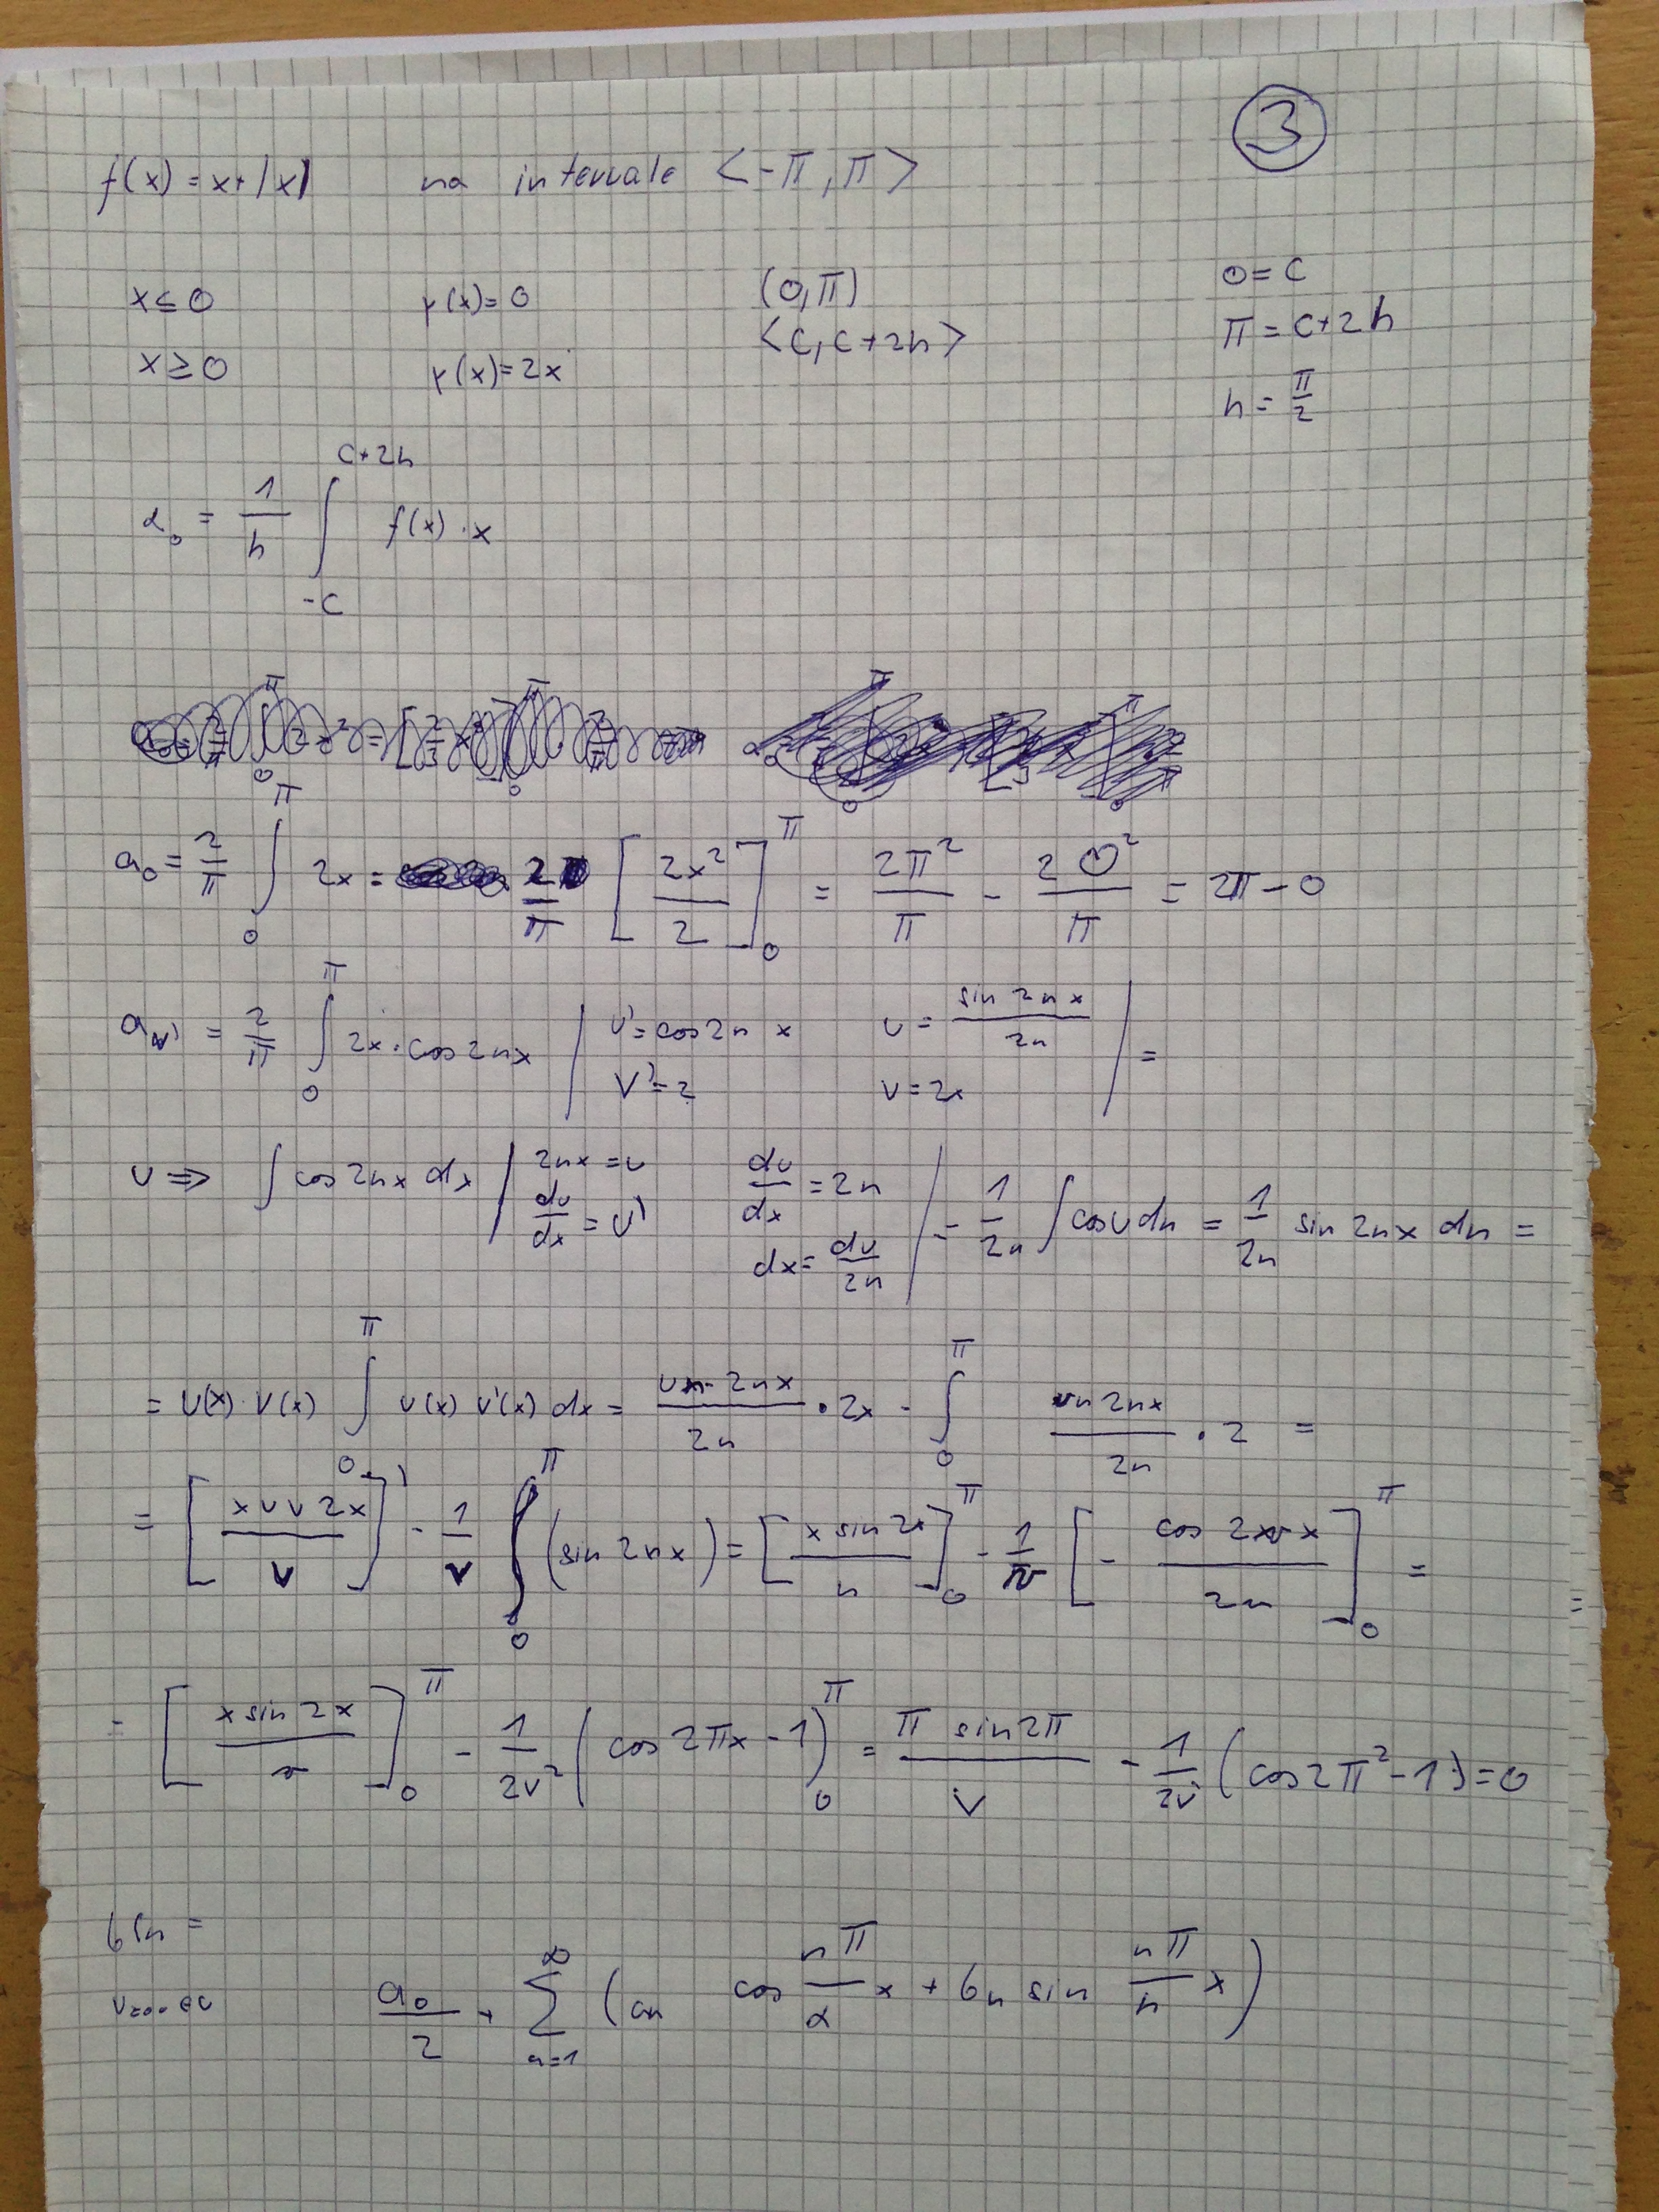 3
f(x) = x+|x| na intervale <-π, π>
x ≤ 0 r(x) = 0 (0, π) 0 = c
x ≥ 0 r(x) = 2x <c, c+2h> π = c+2h
h = π/2
a₀ = 1/h ∫_{-c}^{c+2h} f(x) · x
a₀ = 2/π ∫_0^π 2x = 2/π [2x²/2]_0^π = 2π²/π - 2 0²/π = 2π - 0
= 2/π ∫_0^π 2x · cos 2nx | u' = cos 2n x u = sin 2nx / 2n | =
v' = 2 v = 2x
u ⇒ ∫ cos 2nx dx | 2nx = u du/dx = 2n | = 1/2n ∫ cos u du = 1/2n sin 2nx dn =
du/dx = u' dx = du/2n
= u(x) · v(x) ∫_0^π u(x) v'(x) dx = 2nx / 2n · 2x - ∫_0^π 2nx / 2n · 2 =
= [ 2x / v] - 1/v ∫_0^π (sin 2nx) = [x sin 2x / n]_0^π - 1/n [- cos 2 x / 2n]_0^π =
= [x sin 2x / n]_0^π - 1/2v² (cos 2πx - 1)_0^π = π sin 2π / v - 1/2v (cos 2π² - 1) = 0
=
a₀/2 + Σ_{n=1}^∞ (an cos nπ/α x + bn sin nπ/h x)